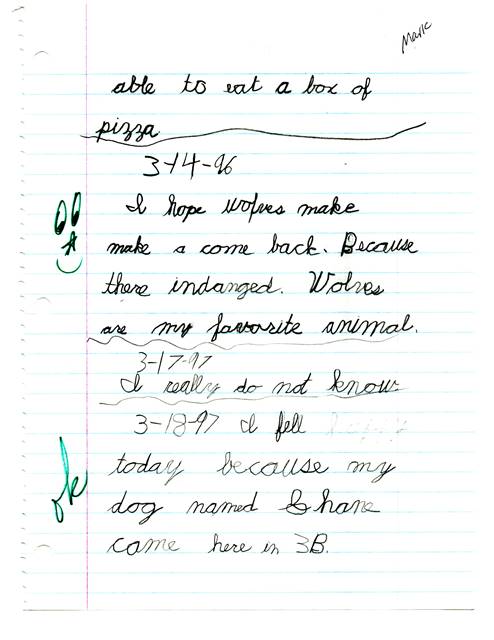 Mark
able to eat a box of
pizza
3-14-96
I hope wolves make
make a come back. Because
there indanged. Wolves
are my favorite animal.
3-17-97
I really do not know
3-18-97 I fell happy
ok
today because my
dog named Shane
came here in 3B.